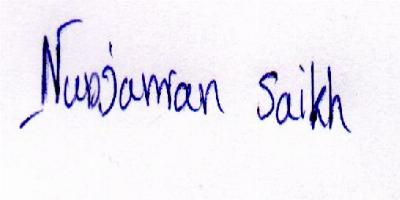 Nurjaman Saikh